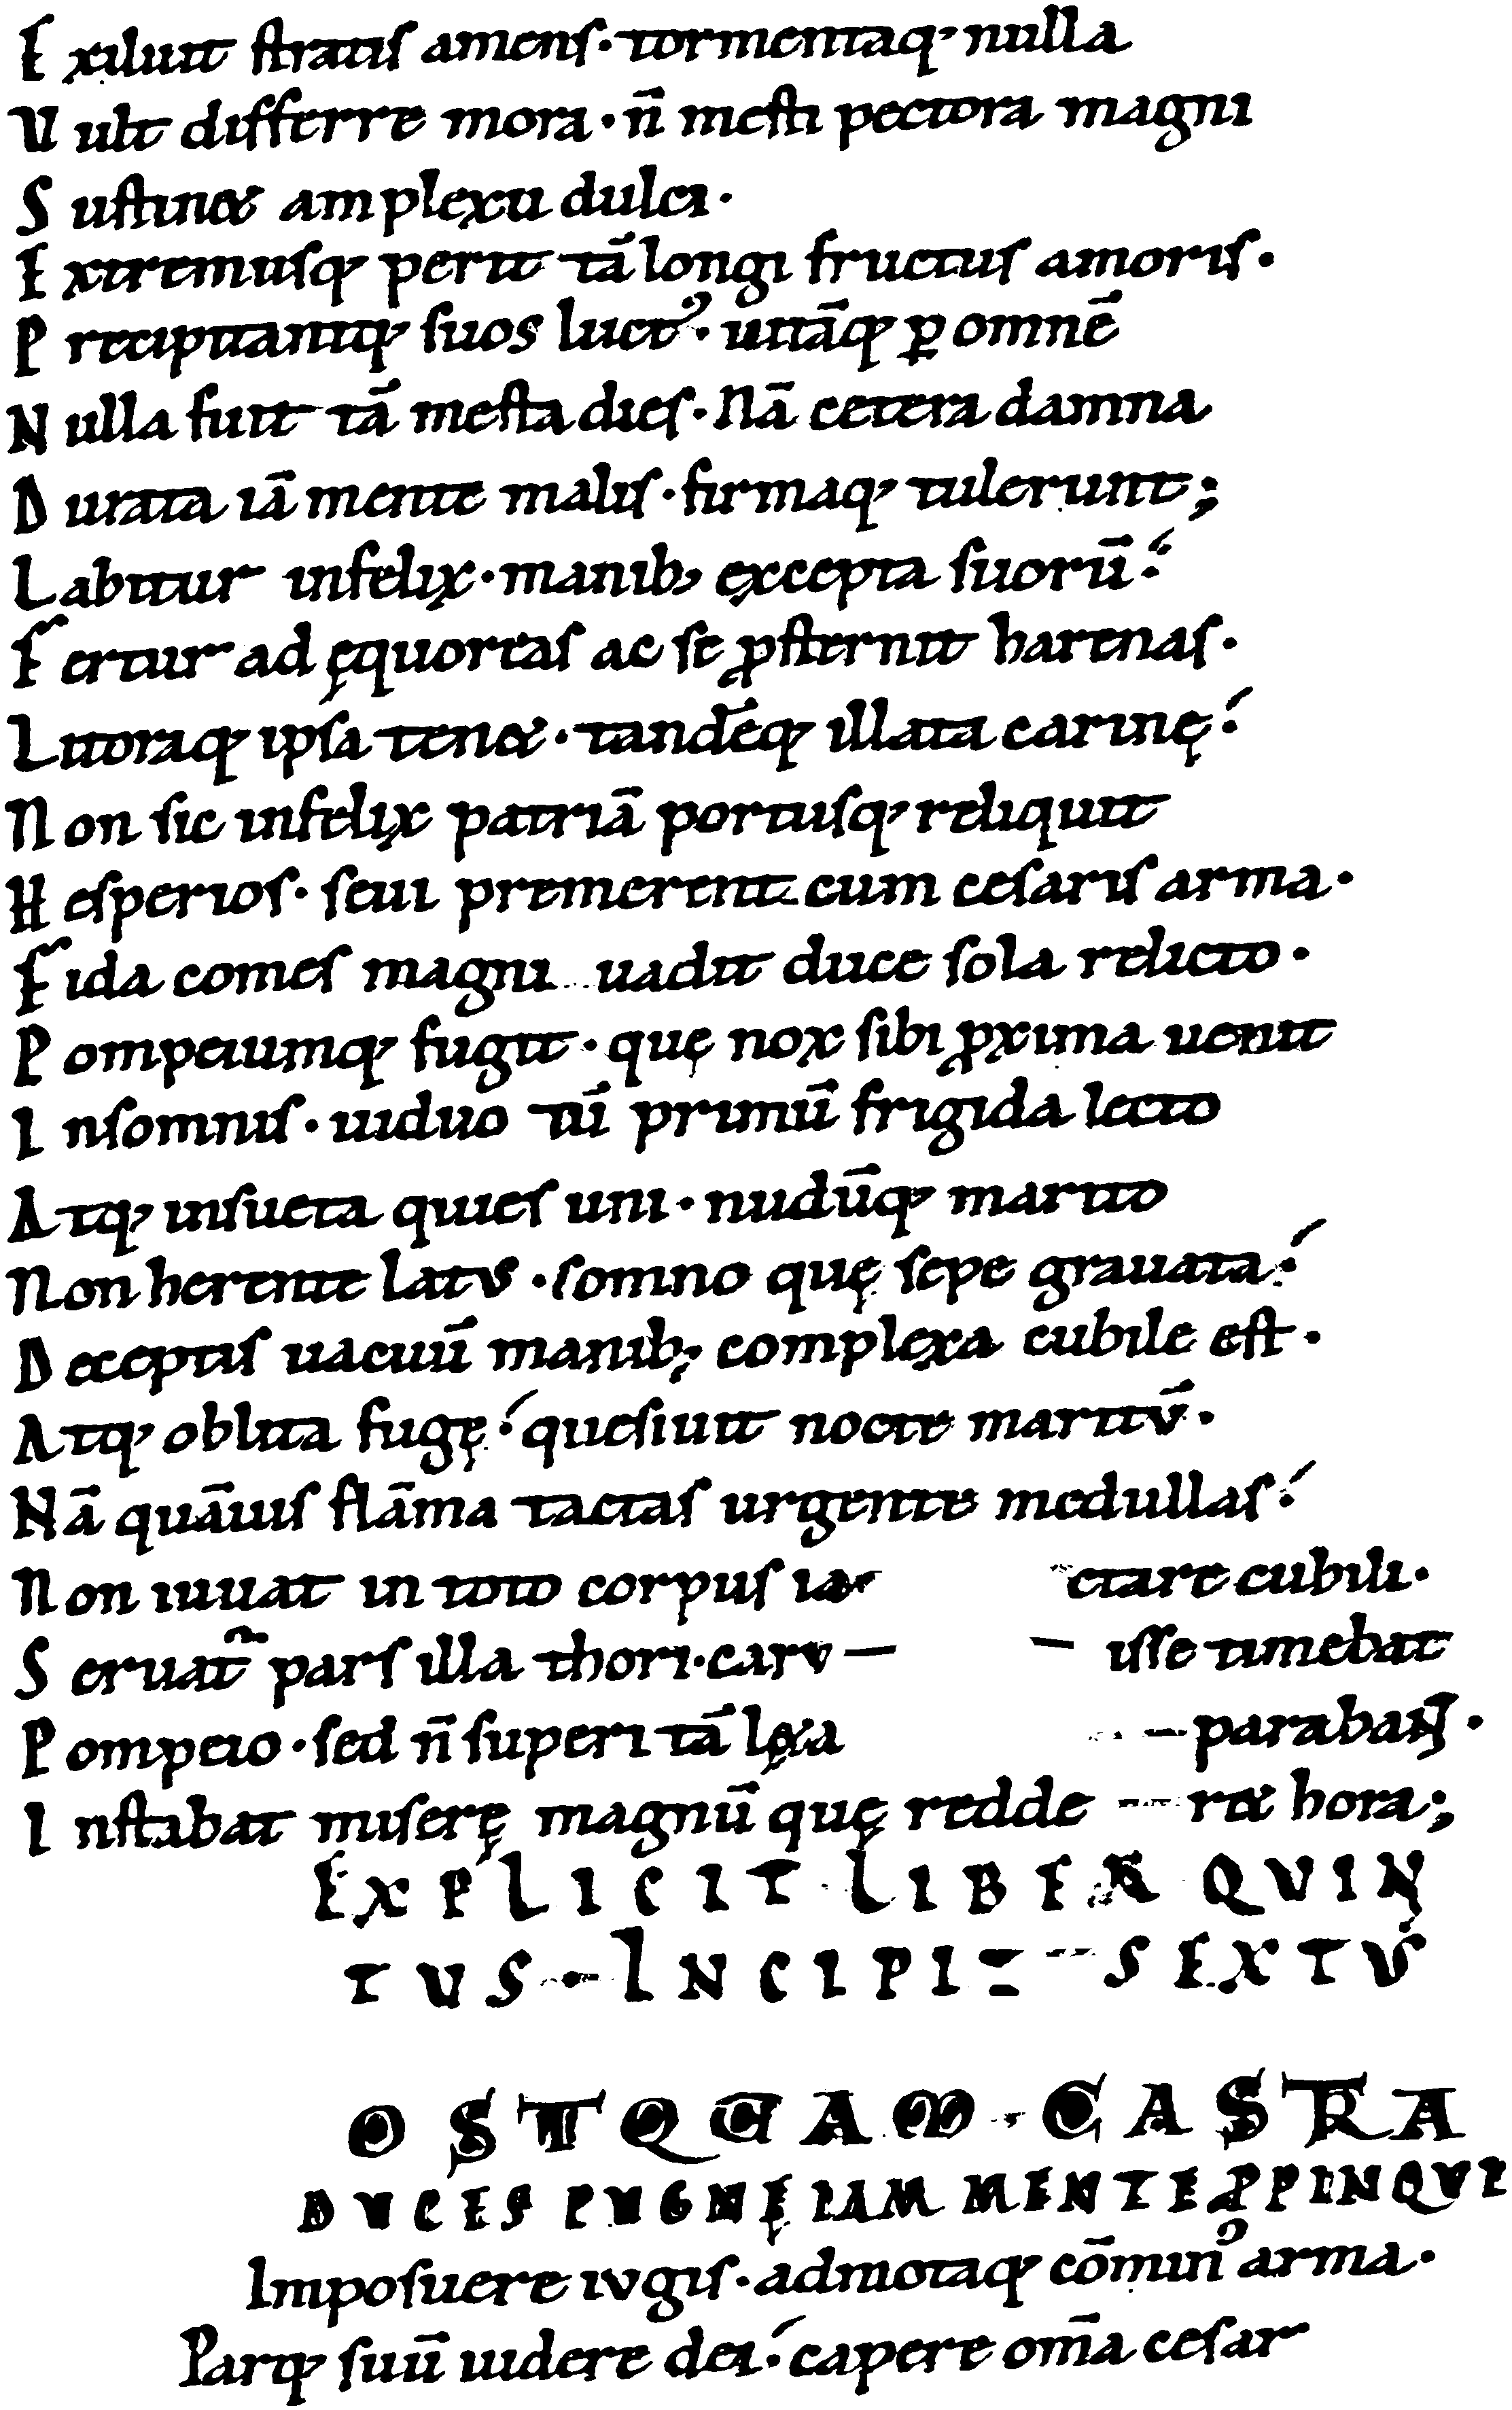 E xiluit stratis amens· tormentaq; nulla
V ult differre mora· n̄ mesti pectora magni
S ustin& amplexu dulci·
E xtremusq; perit tā longi fructus amoris·
P recipitantq; suos luctꝰ· uitāq; ꝑ omnē
N ulla fuit tā mesta dies· Nā cetera damna
D urata iā mente malis· firmaq; tulerunt;
L abitur infelix· manib; excepta suorū·
F ertur ad ęquoreas ac se ꝓsternit harenas·
L itoraq; ipsa ten&· tandēq; illata carinę·
N on sic infelix patriā portusq; reliquit
H esperios· seui premerent cum cesaris arma·
F ida comes magni uadit duce sola relicto·
P ompeiumq; fugit· quę nox sibi ꝓxima uenit
I nsomnis· uiduo tū primū frigida lecto
A tq; insueta quies uni· nudūq; marito
N on herente latus· somno quę sepe grauata·
D eceptis uacuū manib; complexa cubile est·
A tq; oblita fugę· quesiuit nocte maritū·
N ā quāuis flāma tacitas urgente medullas·
N on iuuat in toto corpus ia ctare cubili·
S eruat᷑ pars illa thori· caru isse timebat
P ompeio· sed n̄ superi tā lęta parabant·
I nstabat miserę magnū quę redde r& hora;
EXPLICIT LIBER QVIN
TVS· INCIPIT SEXTVS
OSTQVAM CASTRA
DVCES PVGNĘ IAM MENTE ꝒPINQVI
Imposuere iugis· admotaq; cōminꝰ arma·
Parq; suū uidere dei· capere om̄a cesar